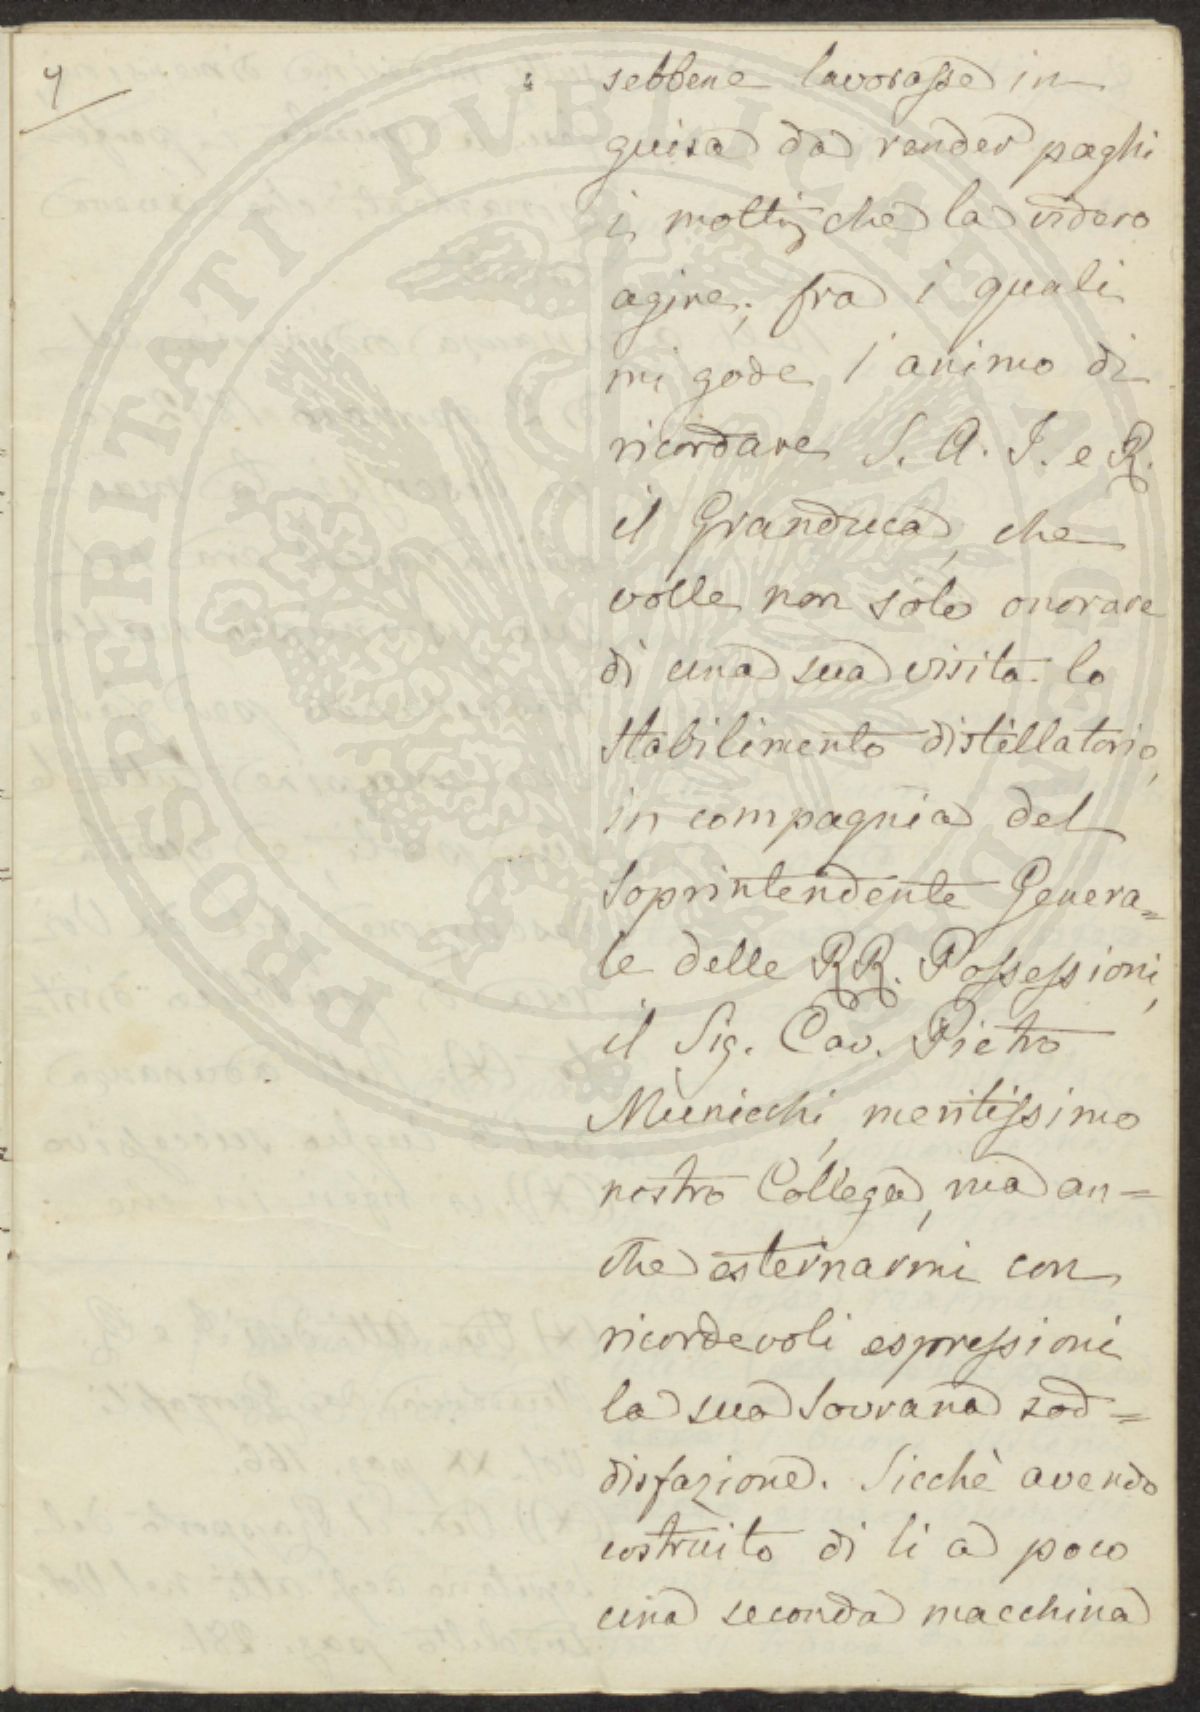 4
sebbene lavorasse in
guisa da render paghi
i molti, che la videro
agire; fra i quali
mi gode l'animo di
ricordare S. A. I. e R.
il Granduca, che
volle non solo onorare
di una sua visita lo
Stabilimento distillatorio,
in compagnia del
Soprintendente Genera=
le delle RR. Possessioni,
il Sig. Cav. Pietro
Municchi, meritissimo
nostro Collega, ma an=
che esternarmi con
ricordevoli espressioni
la sua Sovrana sod=
disfazione. Sicchè avendo
costruito di lì a poco
una seconda macchina
PROSPERITATI PVBLICAE AVGENDAE